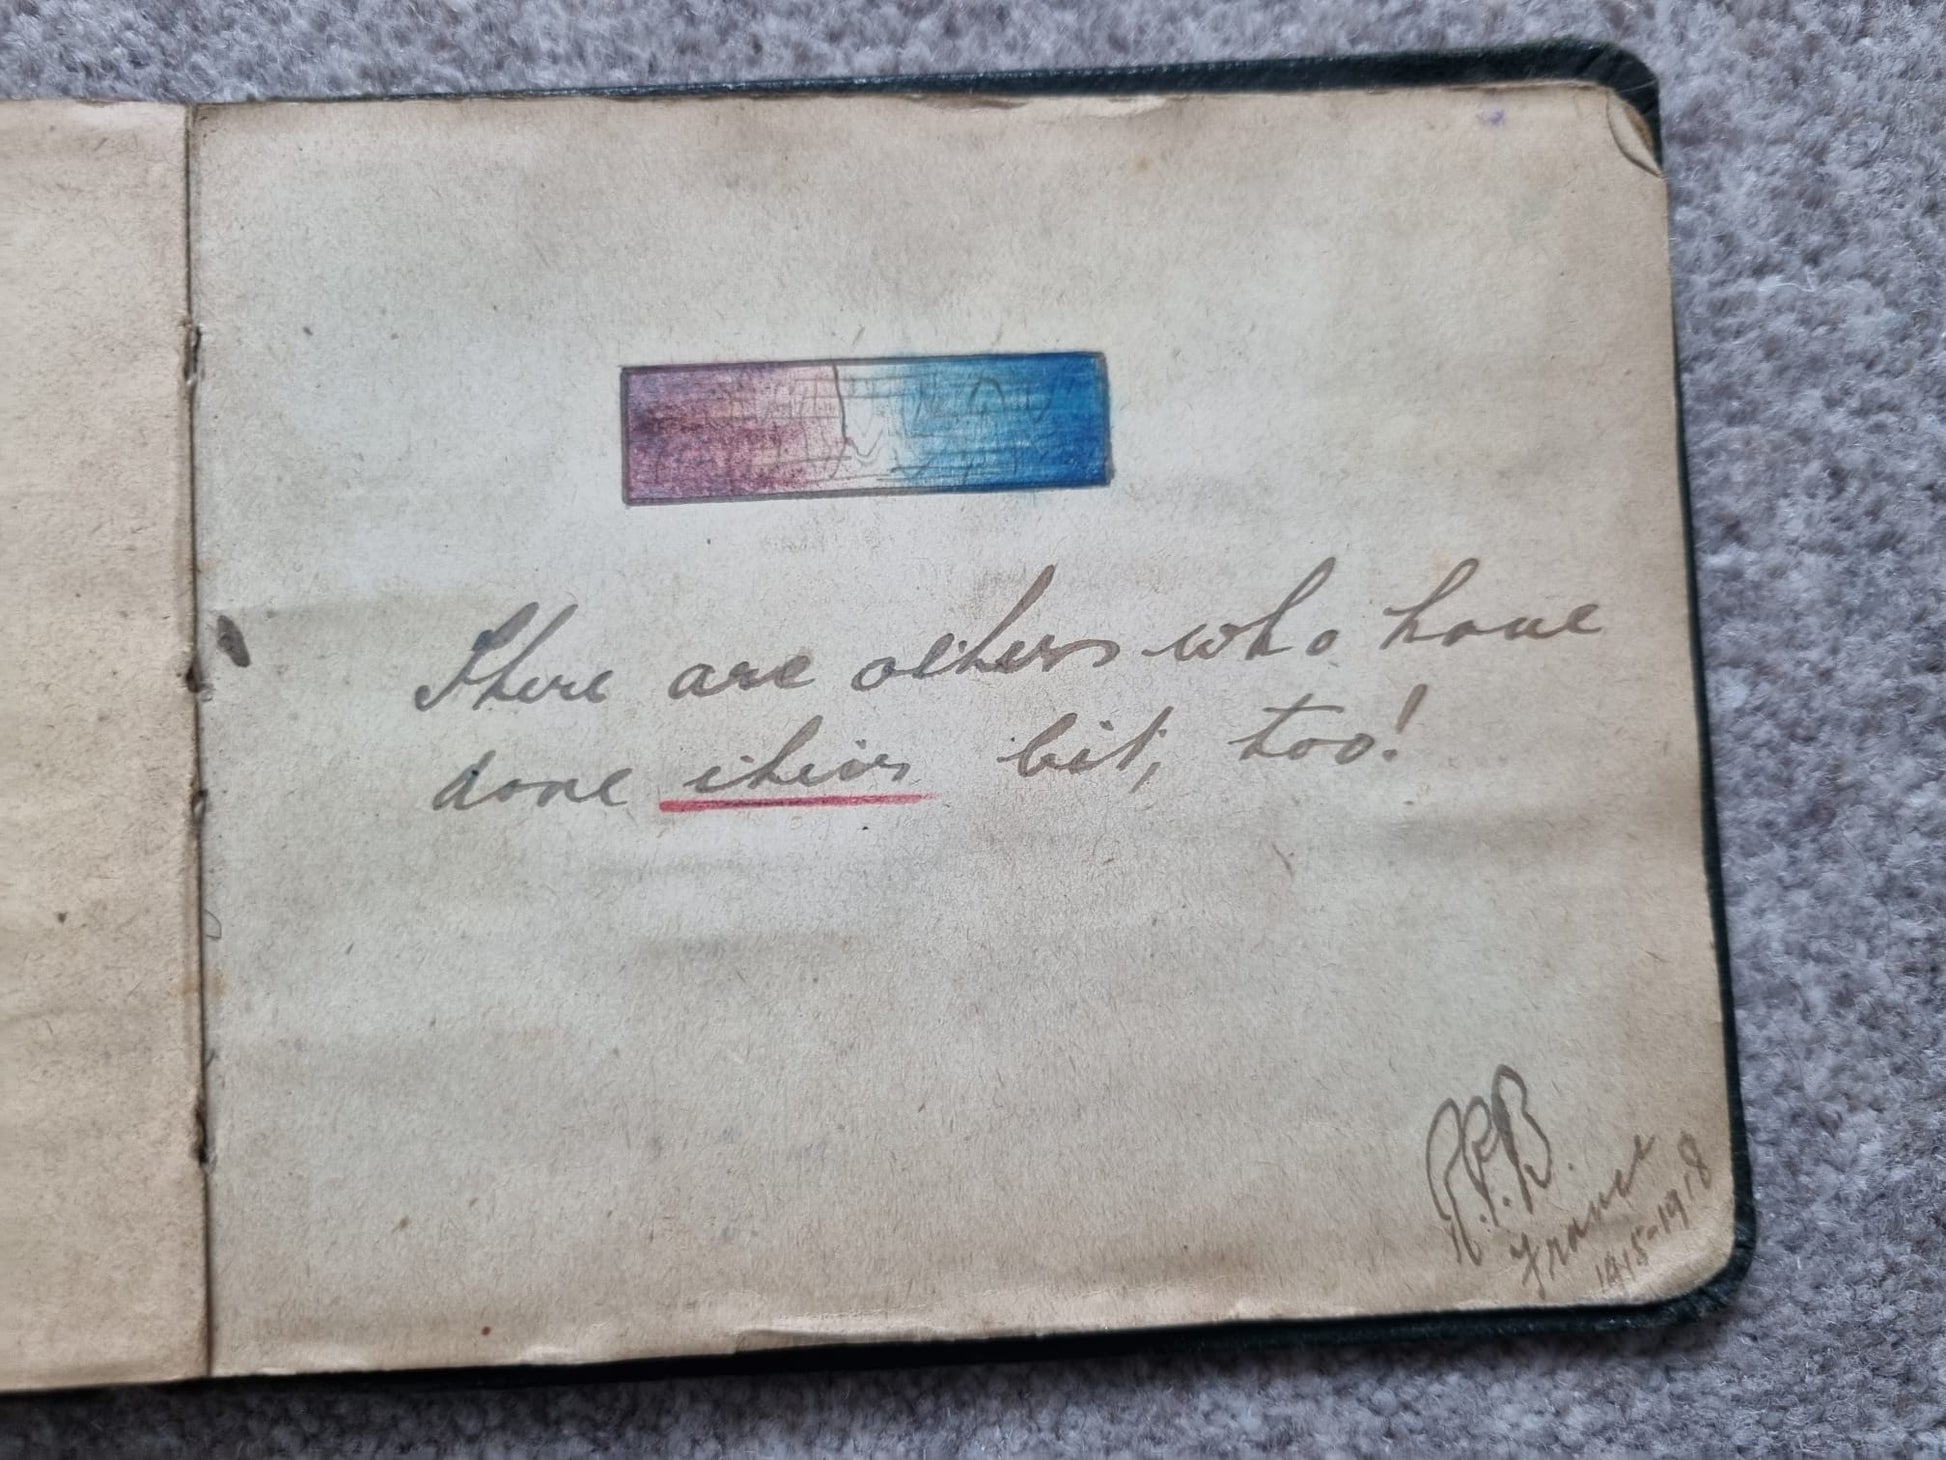 There are others who have
done their bit, too!
P.P.B.
France
1915-1918